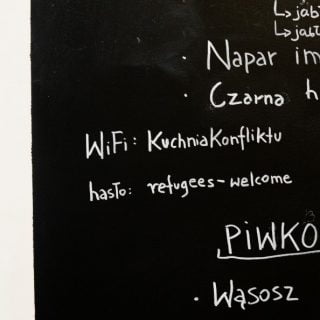 ↳jabł
↳jabł
· Napar im
· Czarna h
WiFi: KuchniaKonfliktu
hasło: refugees-welcome
PIWKO
· Wąsosz